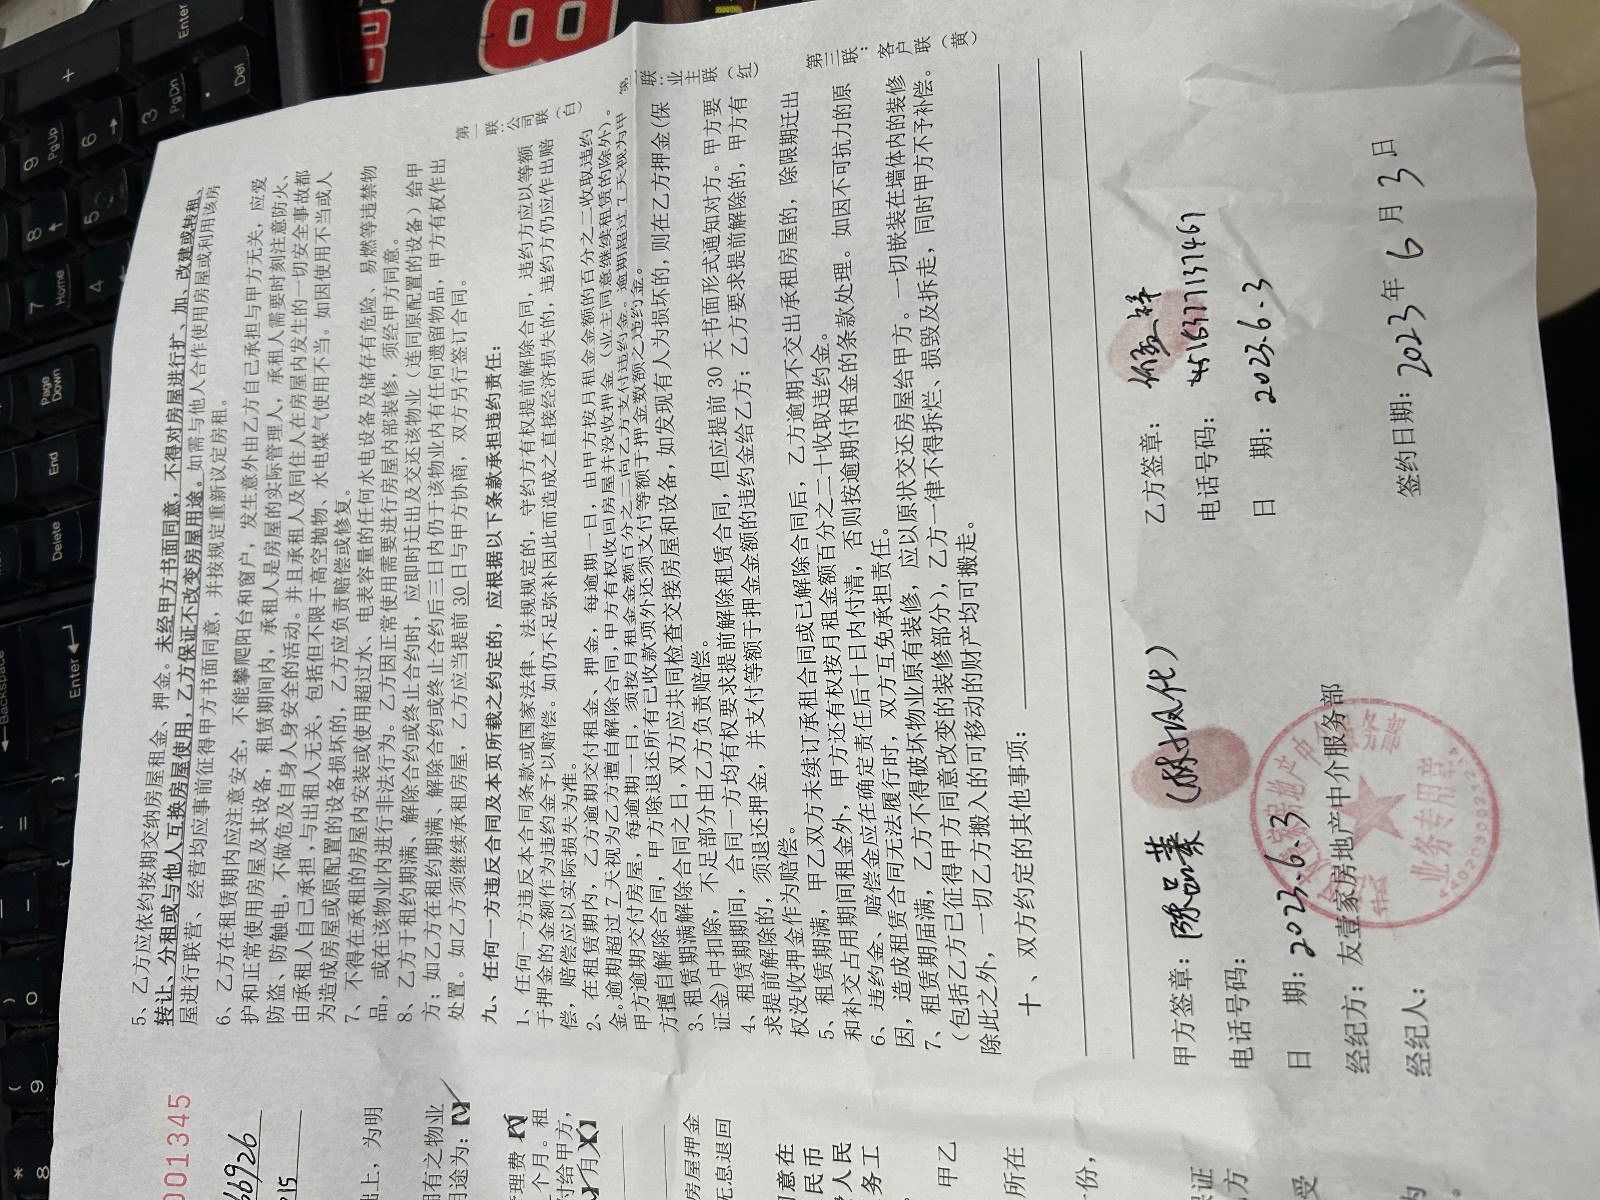 5、乙方应依约按期交纳房屋租金、押金。未经甲方书面同意，不得对房屋进行扩、加、改建或转租、
转让、分租或与他人互换房屋使用，乙方保证不改变房屋用途。如需与他人合作使用房屋或利用该房
屋进行联营、经营均应事前征得甲方书面同意，并按规定重新议定房租。
6、乙方在租赁期内应注意安全，不能攀爬阳台和窗户，发生意外由乙方自己承担与甲方无关，应爱
护和正常使用房屋及其设备，租赁期间内，承租人是房屋的实际管理人，承租人需要时刻注意防火、
防盗、防触电，不做危及自身人身安全的活动。并且承租人及同住人在房屋内发生的一切安全事故都
由承租人自己承担，与出租人无关，包括但不限于高空抛物、水电煤气使用不当。如因使用不当或人
为造成房屋或原配置的设备损坏的，乙方应负责赔偿或修复。
7、不得在承租的房屋内安装或使用超过水、电表容量的任何水电设备及储存有危险、易燃等违禁物
品，或在该物业内进行非法行为。乙方因正常使用需要进行房屋内部装修，须经甲方同意。
8、乙方于租约期满、解除合约或终止合约时，应即时迁出及交还该物业（连同原配置的设备）给甲
方；如乙方在租约期满、解除合约或终止合约后三日内仍于该物业内有任何遗留物品，甲方有权作出
处置。如乙方须继续承租房屋，乙方应当提前 30 日与甲方协商，双方另行签订合同。
九、任何一方违反合同及本页所载之约定的，应根据以下条款承担违约责任：
1、任何一方违反本合同条款或国家法律、法规规定的，守约方有权提前解除合同，违约方应以等额
于押金的金额作为违约金予以赔偿。如仍不足弥补因此而造成之直接经济损失的，违约方仍应作出赔
偿，赔偿应以实际损失为准。
2、在租赁期内，乙方逾期交付租金、押金，每逾期一日，由甲方按月租金金额的百分之二收取违约
金。逾期超过 7 天视为乙方擅自解除合同，甲方有权收回房屋并没收押金（业主同意继续租赁的除外）。
甲方逾期交付房屋，每逾期一日，须按月租金金额百分之二向乙方支付违约金。逾期超过 7 天视为甲
方擅自解除合同，甲方除退还所有已收款项外还须支付等额于押金数额之违约金。
3、租赁期满解除合同之日，双方应共同检查交接房屋和设备，如发现有人为损坏的，则在乙方押金(保
证金）中扣除，不足部分由乙方负责赔偿。
4、租赁期期间，合同一方均有权要求提前解除租赁合同，但应提前 30 天书面形式通知对方。甲方要
求提前解除的，须退还押金，并支付等额于押金金额的违约金给乙方；乙方要求提前解除的，甲方有
权没收押金作为赔偿。
5、租赁期满，甲乙双方未续订承租合同或已解除合同后，乙方逾期不交出承租房屋的，除限期迁出
和补交占用期间租金外，甲方还有权按月租金额百分之二十收取违约金。
6、违约金、赔偿金应在确定责任后十日内付清，否则按逾期付租金的条款处理。如因不可抗力的原
因，造成租赁合同无法履行时，双方互免承担责任。
7、租赁期届满，乙方不得破坏物业原有装修，应以原状交还房屋给甲方。一切嵌装在墙体内的装修
（包括乙方已征得甲方同意改变的装修部分），乙方一律不得拆烂、损毁及拆走，同时甲方不予补偿。
除此之外，一切乙方搬入的可移动的财产均可搬走。
十、双方约定的其他事项：
甲方签章：陈品菜
电话号码：
日 期：2023.6.3
经纪方：友壹家房地产中介服务部
经纪人：
乙方签章：
电话号码：
日 期：2023.6.3
签约日期：2023年6月3日
业务专用章
第一联：公司联（白）
联：业主联（红）
第三联：客户联（黄）
001345
66926
215
上，为明
有之物业
用途为：
理费
个月。租
付给甲方，
房屋押金
无息退回
意在
民币
人民
务工
甲乙
所在
份，
证
方
受
* 8
( 9
) 0
=
Backspace
Enter
Delete
End
Page Down
7 Home
8
9 PgUp
4
5
6
3 PgDn
+
Enter
. Del
8